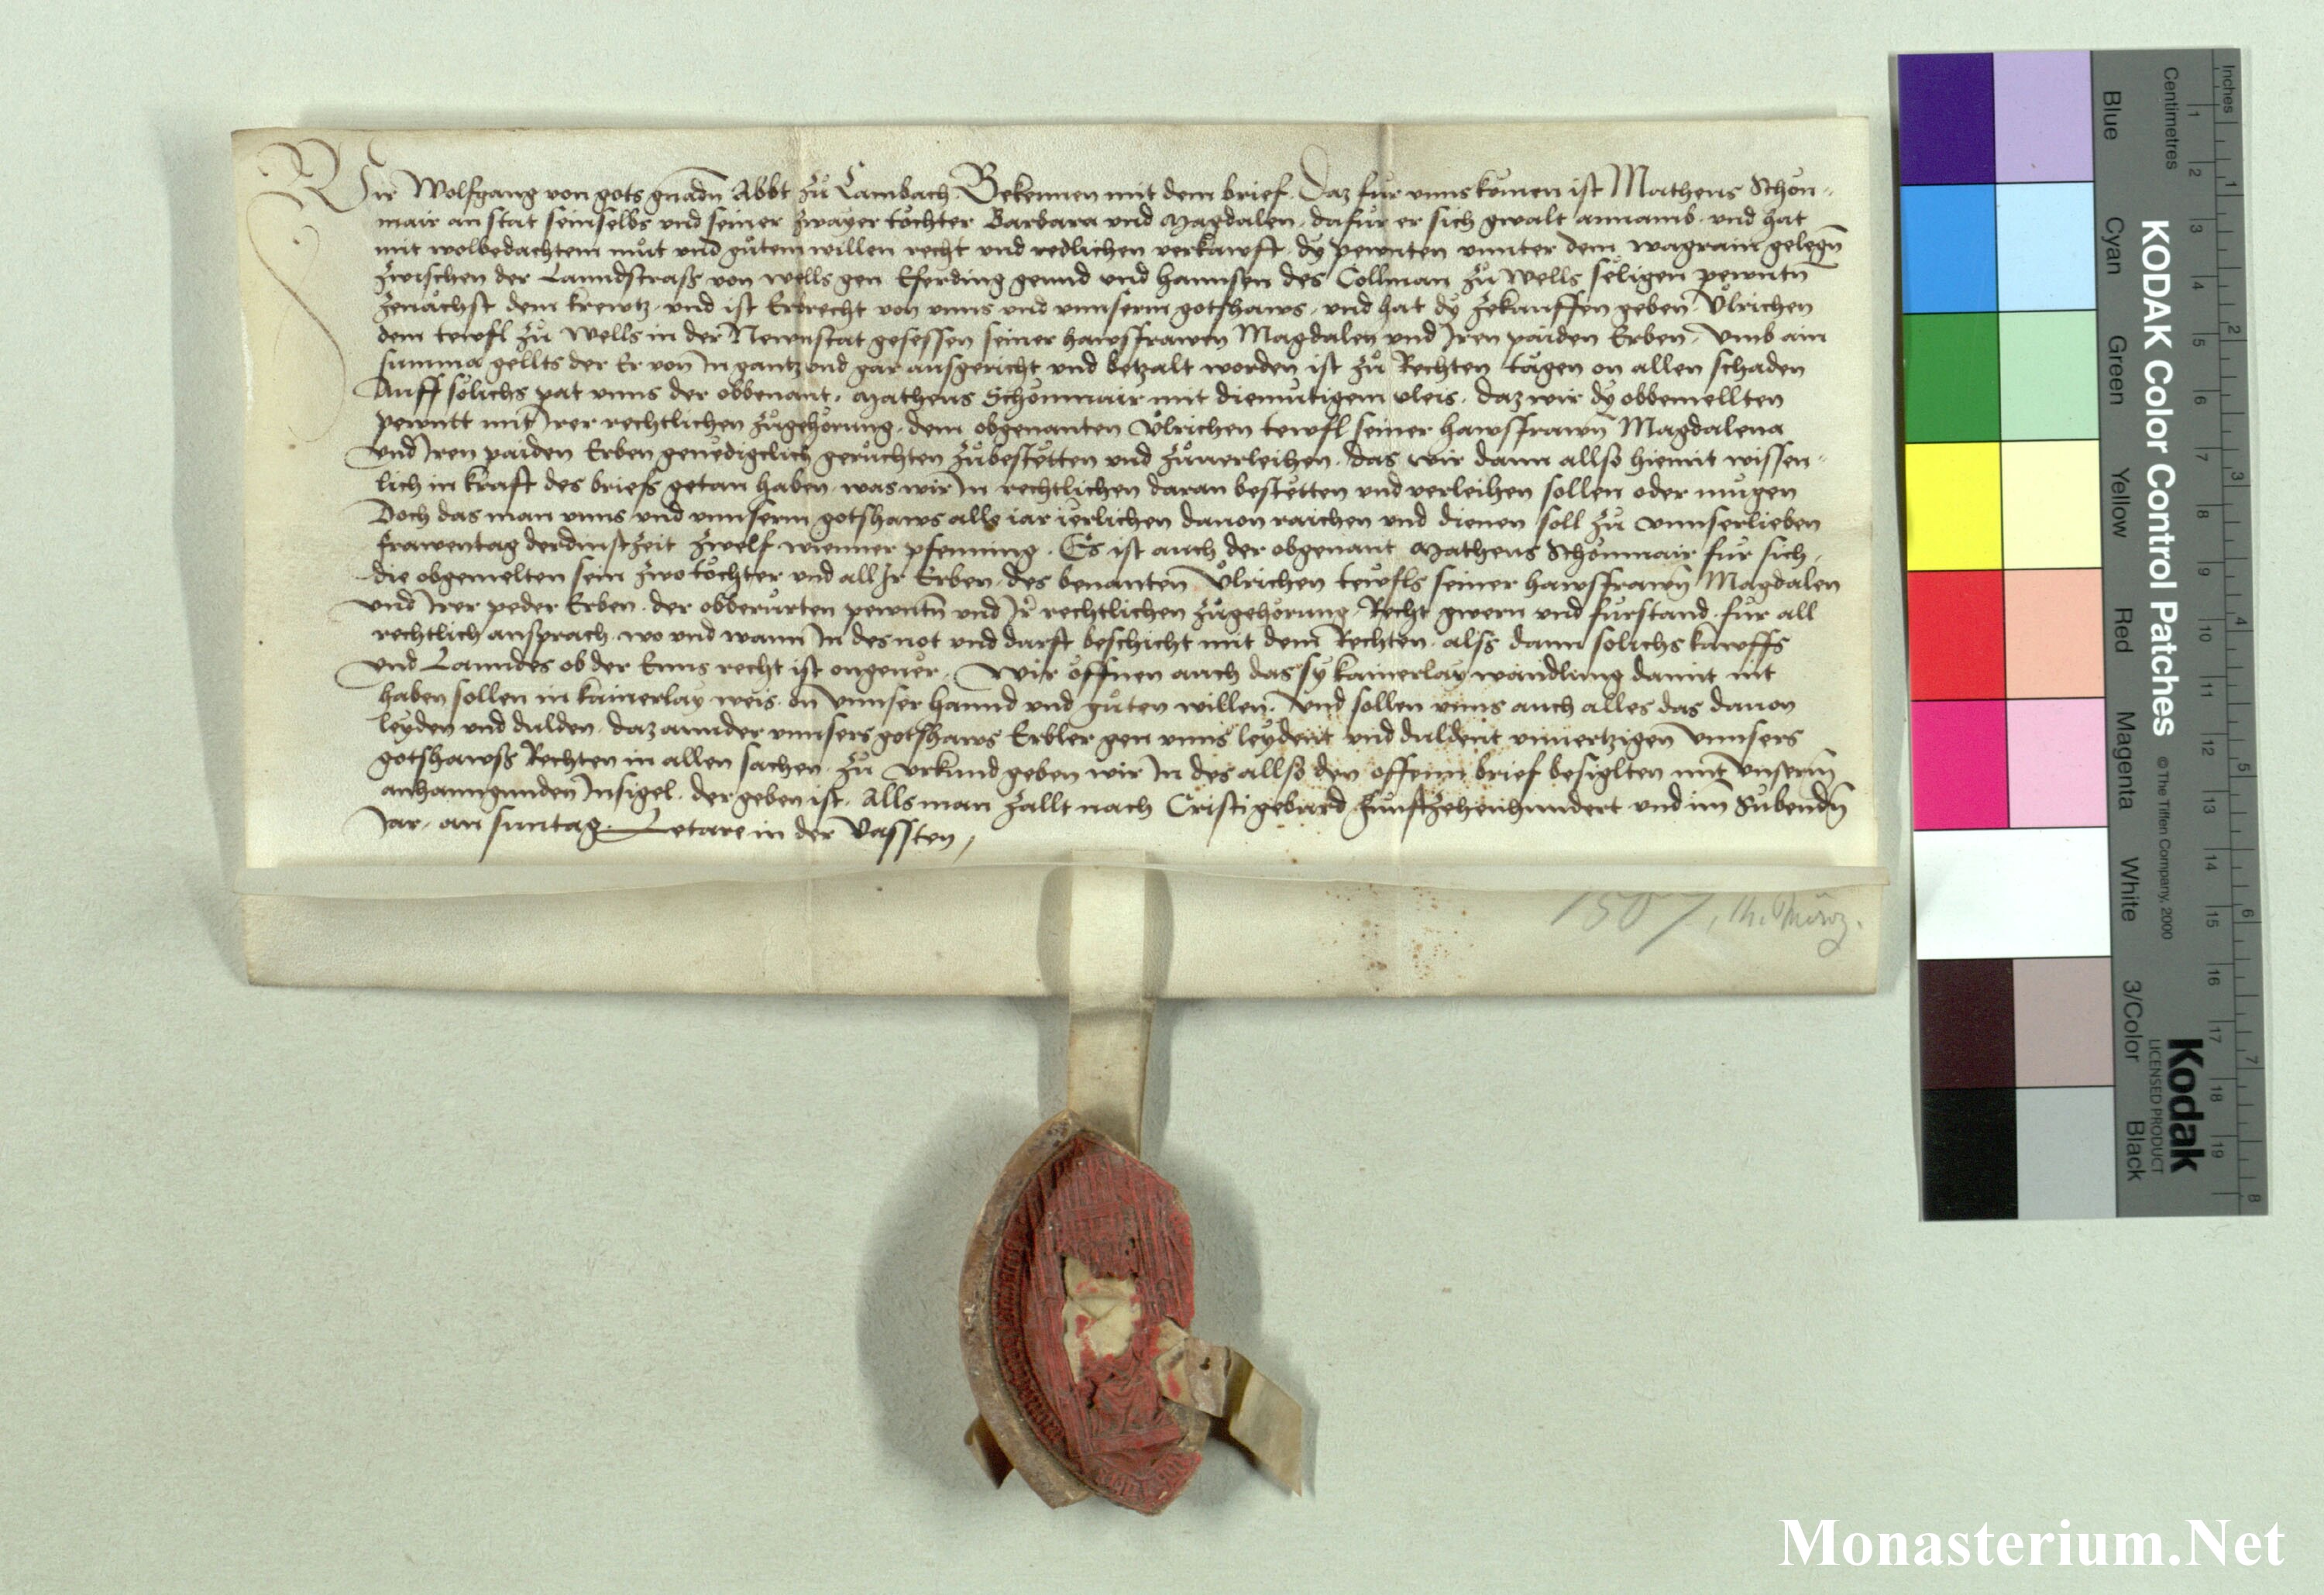 Wir Wolfgang von gots gnadn̄ Abbt zů Lambach Bekennen mit dem brief. Daz fur vnns komen ist Mathens Schon-
mair an stat seinselbs vnd seiner zwayer tochter Barbara vnd Magdalen. dafur er sich gwalt annamb. vnd hat
mit wolbedachtem můt vnd gůtem willen recht vnd redlichen verkawft. dy pewnten vnnter dem wagrain gelegn̄
zwischen der Lanndstrass von wells gen Eferding gennd vnd hannsen des Collman zů wells seligen pewntn̄
zenachst dem krewtz. vnd ist Erbrecht von vnns vnd vnnserm gotshaws. vnd hat dy zekauffen geben. Ůlrichen
dem tewfl zů wells in der Newnstat gesessen seiner hawsfrawen Magdalen vnd Jren paiden Erben. vmb ain
summa gellts der Er von In gantz vnd gar ausgericht vnd betzalt worden ist zů Rechten tagen on allen schaden
Auff solichs pat vnns der obbenant. Mathens Schonmair mit diemutigem vleis. daz wir dy obbemellten
pewntt mit Jrer rechtlichen zůgehorung. dem obgenanten Ůlrichen tewfl seiner hawsfrawn̄ Magdalena
vnd Jren paiden Erben genedigclich geruchten zůbestetten vnd zůuerleihen. das wir dann allso hiemit wissen-
lich in kraft des briefs getan haben. was wir In rechtlichen daran bestetten vnd verleihen sollen oder mugen
Doch das man vnns vnd vnnserm gotshaws alle iar ierlichen dauon raichen vnd dienen soll zů vnnserlieben
frawentag der dinstzeit zwelf wienner pfenning. Es ist auch der obgenant Mathens Schonmair fur sich,
die obgemelten sein zwo tochter vnd all Jr Erben. des benanten Ůlrichen tewfls seiner hawsfrawn̄ Magdalen
vnd Jrer peder Erben. der obberurten pewntn̄ vnd Jr rechtlichen zůgehorung. Recht gwern vnd furstand. fur all
rechtlich ansprach. wo vnd wann In des not vnd darft beschicht mit dem Rechten. alss dann solichs kawffs
vnd Lanndes ob der Enns recht ist ongeuer. Wir offnen auch das sy kainerlay wandlung damit nit
haben sollen in kainerlay weis. on vnnser hannd vnd gůten willen. Vnd sollen vnns auch alles das dauon
leyden vnd dulden. daz annder vnnsers gotshaws Erbler gen vnns leydent vnd duldent vnuertzigen vnnsers
gotshawss Rechten in allen sachen. zů vrkund geben wir In des allso den offenn brief besiglten mit vnserm̄
anhanngunden Insigel. der geben ist. Alls man zallt nach Cristi geburd Funftzehenhundert vnd im Subendn̄
Jar. an suntag Letare in der Vassten,
1507, 14. März.
KODAK Color Control Patches
© The Tiffen Company, 2000
Kodak
LICENSED PRODUCT
Inches 1 2 3 4 5 6 7 8
Centimetres 1 2 3 4 5 6 7 8 9 10 11 12 13 14 15 16 17 18 19
Blue Cyan Green Yellow Red Magenta White 3/Color Black
Monasterium.Net